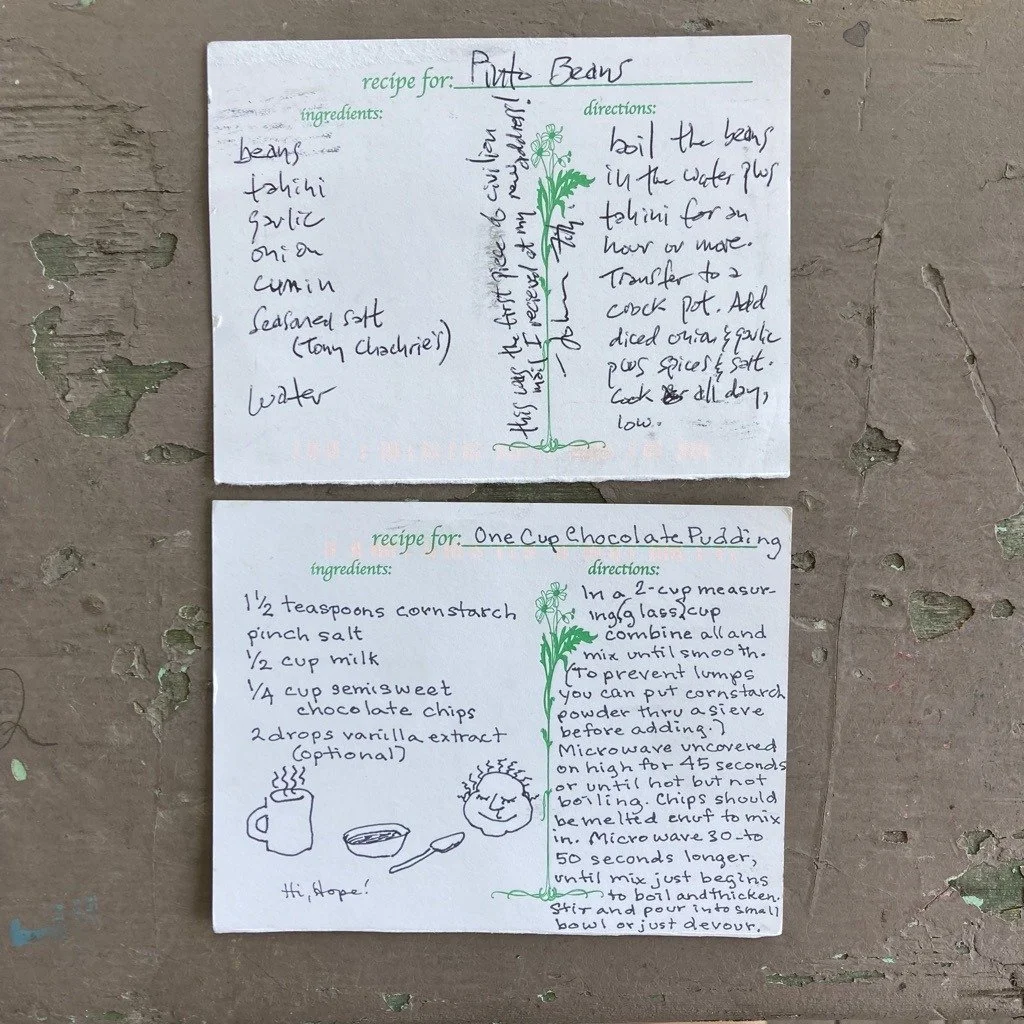 recipe for: Pinto Beans
ingredients:
beans
tahini
garlic
onion
cumin
Seasoned salt
(Tony Chachrie's)
water
this was the first piece of civilian
mail I recieved at my new address!
directions:
boil the beans
in the water plus
tahini for an
hour or more.
Transfer to a
crock pot. Add
diced onion & garlic
plus spices & salt.
Cook all day,
low.
recipe for: One Cup Chocolate Pudding
ingredients:
1 1/2 teaspoons cornstarch
pinch salt
1/2 cup milk
1/4 cup semisweet
chocolate chips
2 drops vanilla extract
(optional)
Hi, Hope!
directions:
In a 2-cup measur-
ing (glass) cup
combine all and
mix until smooth.
(To prevent lumps
you can put cornstarch
powder thru a sieve
before adding.)
Microwave uncovered
on high for 45 seconds
or until hot but not
boiling. Chips should
be melted enuf to mix
in. Microwave 30-to
50 seconds longer,
until mix just begins
to boil and thicken.
Stir and pour into small
bowl or just devour.